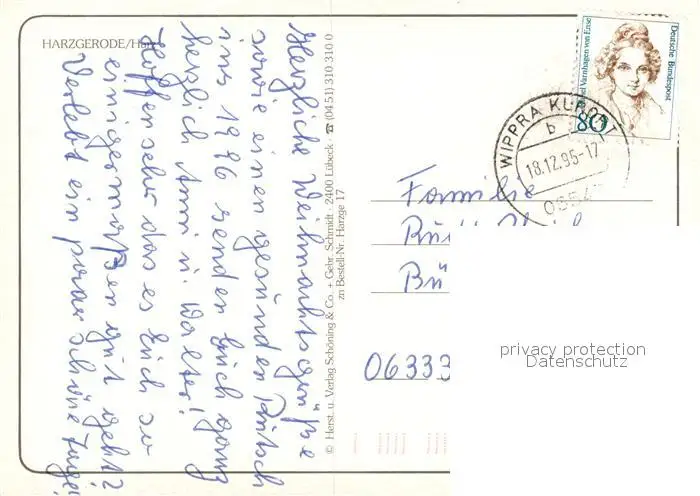 HARZGERODE/Harz
Herzliche Weihnachtsgrüße
sowie einen gesunden Rutsch
ins 1996 senden Euch ganz
herzlich Anni u. Walter!
Hoffen sehr das es Euch so
einigermaßen gut geht?
Verlebt ein paar schöne Tage!
© Herst. u. Verlag Schöning & Co. + Gebr. Schmidt · 2400 Lübeck · ☎ (0451) 310 310 0
zu Bestell-Nr. Harzge 17
Deutsche Bundespost
Varnhagen von Ense
80
WIPPRA KURORT
b
18.12.95-17
Familie
Bü
06333
privacy protection
Datenschutz